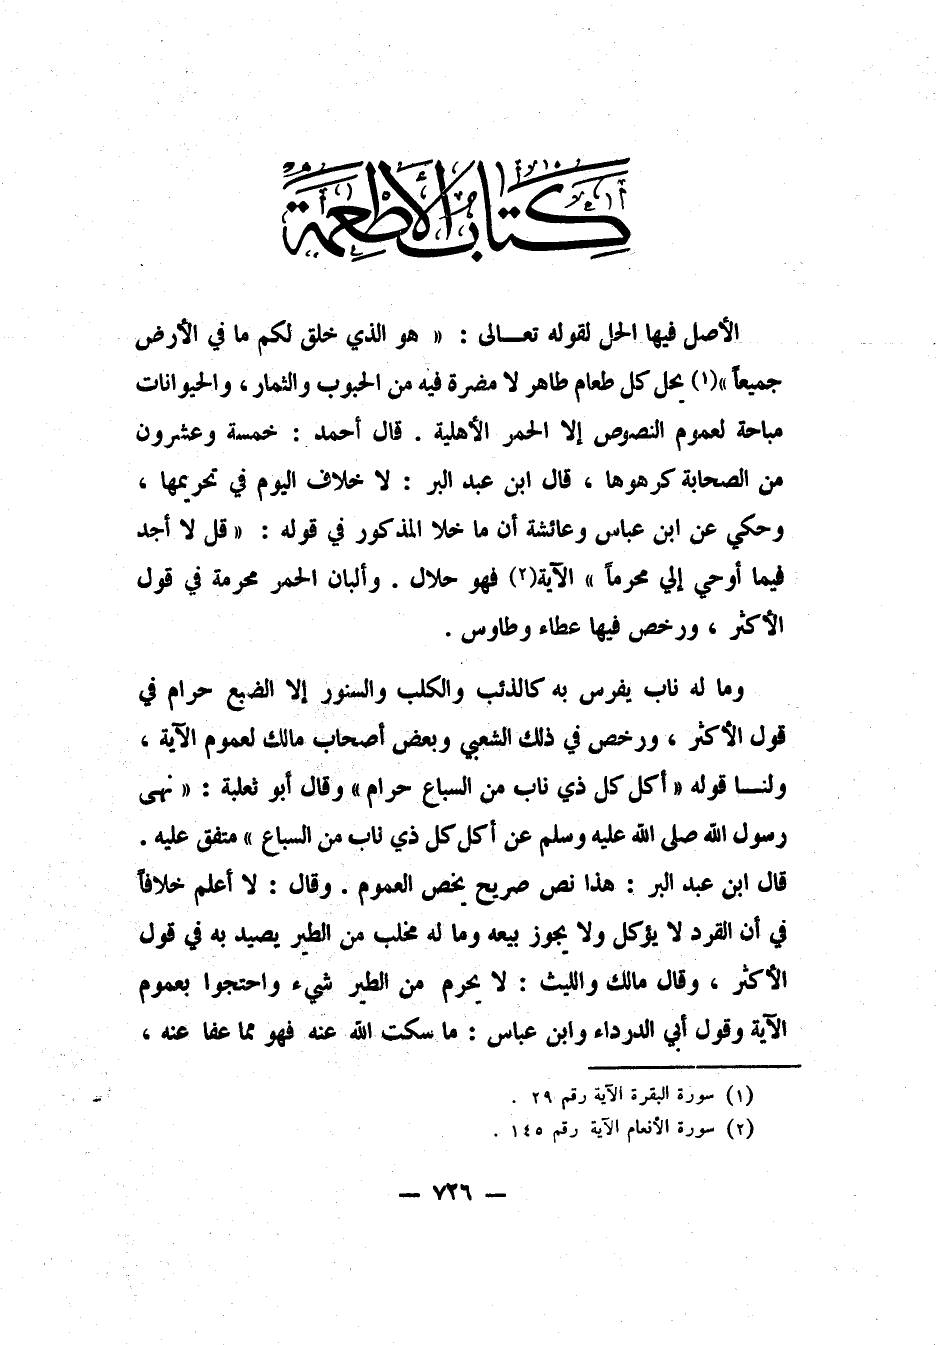 كتاب الأطعمة
الأصل فيها الحل لقوله تعـــالى : « هو الذي خلق لكم ما في الأرض
جميعاً »(١) يحل كل طعام طاهر لا مضرة فيه من الحبوب والثمار ، والحيوانات
مباحة لعموم النصوص إلا الحمر الأهلية . قال أحمد : خمسة وعشرون
من الصحابة كرهوها ، قال ابن عبد البر : لا خلاف اليوم في تحريمها ،
وحكي عن ابن عباس وعائشة أن ما خلا المذكور في قوله : « قل لا أجد
فيما أوحي إلي محرماً » الآية(٢) فهو حلال . وألبان الحمر محرمة في قول
الأكثر ، ورخص فيها عطاء وطاوس .
وما له ناب يفرس به كالذئب والكلب والسنور إلا الضبع حرام في
قول الأكثر ، ورخص في ذلك الشعبي وبعض أصحاب مالك لعموم الآية ،
ولنـــا قوله « أكل كل ذي ناب من السباع حرام » وقال أبو ثعلبة : « نهى
رسول الله صلى الله عليه وسلم عن أكل كل ذي ناب من السباع » متفق عليه .
قال ابن عبد البر : هذا نص صريح يخص العموم . وقال : لا أعلم خلافاً
في أن القرد لا يؤكل ولا يجوز بيعه وما له مخلب من الطير يصيد به في قول
الأكثر ، وقال مالك والليث : لا يحرم من الطير شيء واحتجوا بعموم
الآية وقول أبي الدرداء وابن عباس : ما سكت الله عنه فهو مما عفا عنه ،
(١) سورة البقرة الآية رقم ٢٩ .
(٢) سورة الأنعام الآية رقم ١٤٥ .
— ٧٢٦ —